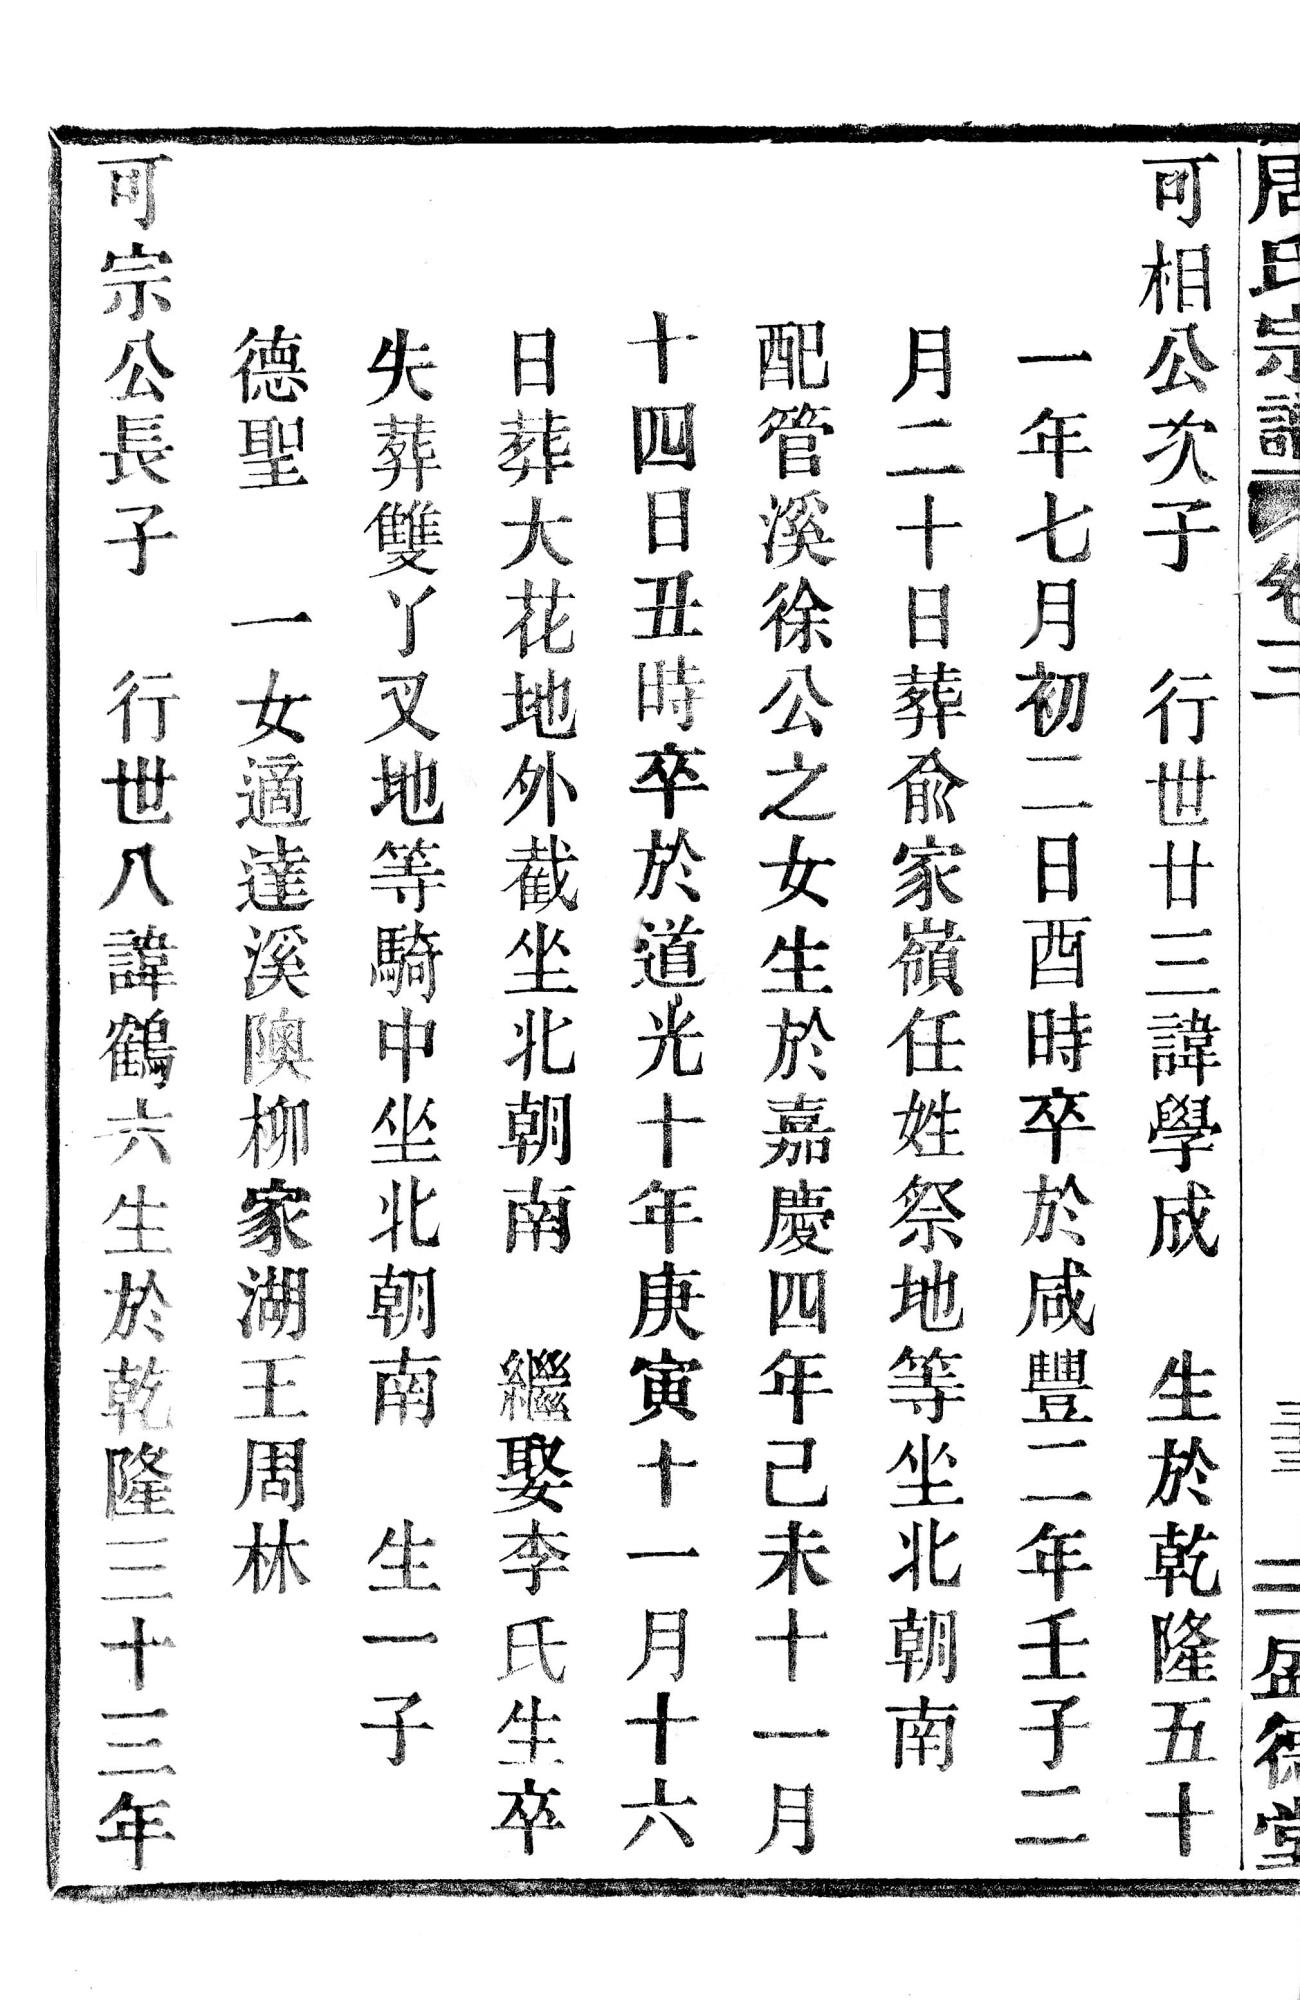 周氏宗譜 卷三 三 盛德堂
可相公次子 行世廿三諱學成 生於乾隆五十
一年七月初二日酉時卒於咸豐二年壬子二
月二十日葬俞家嶺任姓祭地等坐北朝南
配管溪徐公之女生於嘉慶四年己未十一月
十四日丑時卒於道光十年庚寅十一月十六
日葬大花地外截坐北朝南 繼娶李氏生卒
失葬雙丫叉地等騎中坐北朝南 生一子
德聖 一女適達溪隩柳家湖王周林
可宗公長子 行世八諱鶴六生於乾隆三十三年